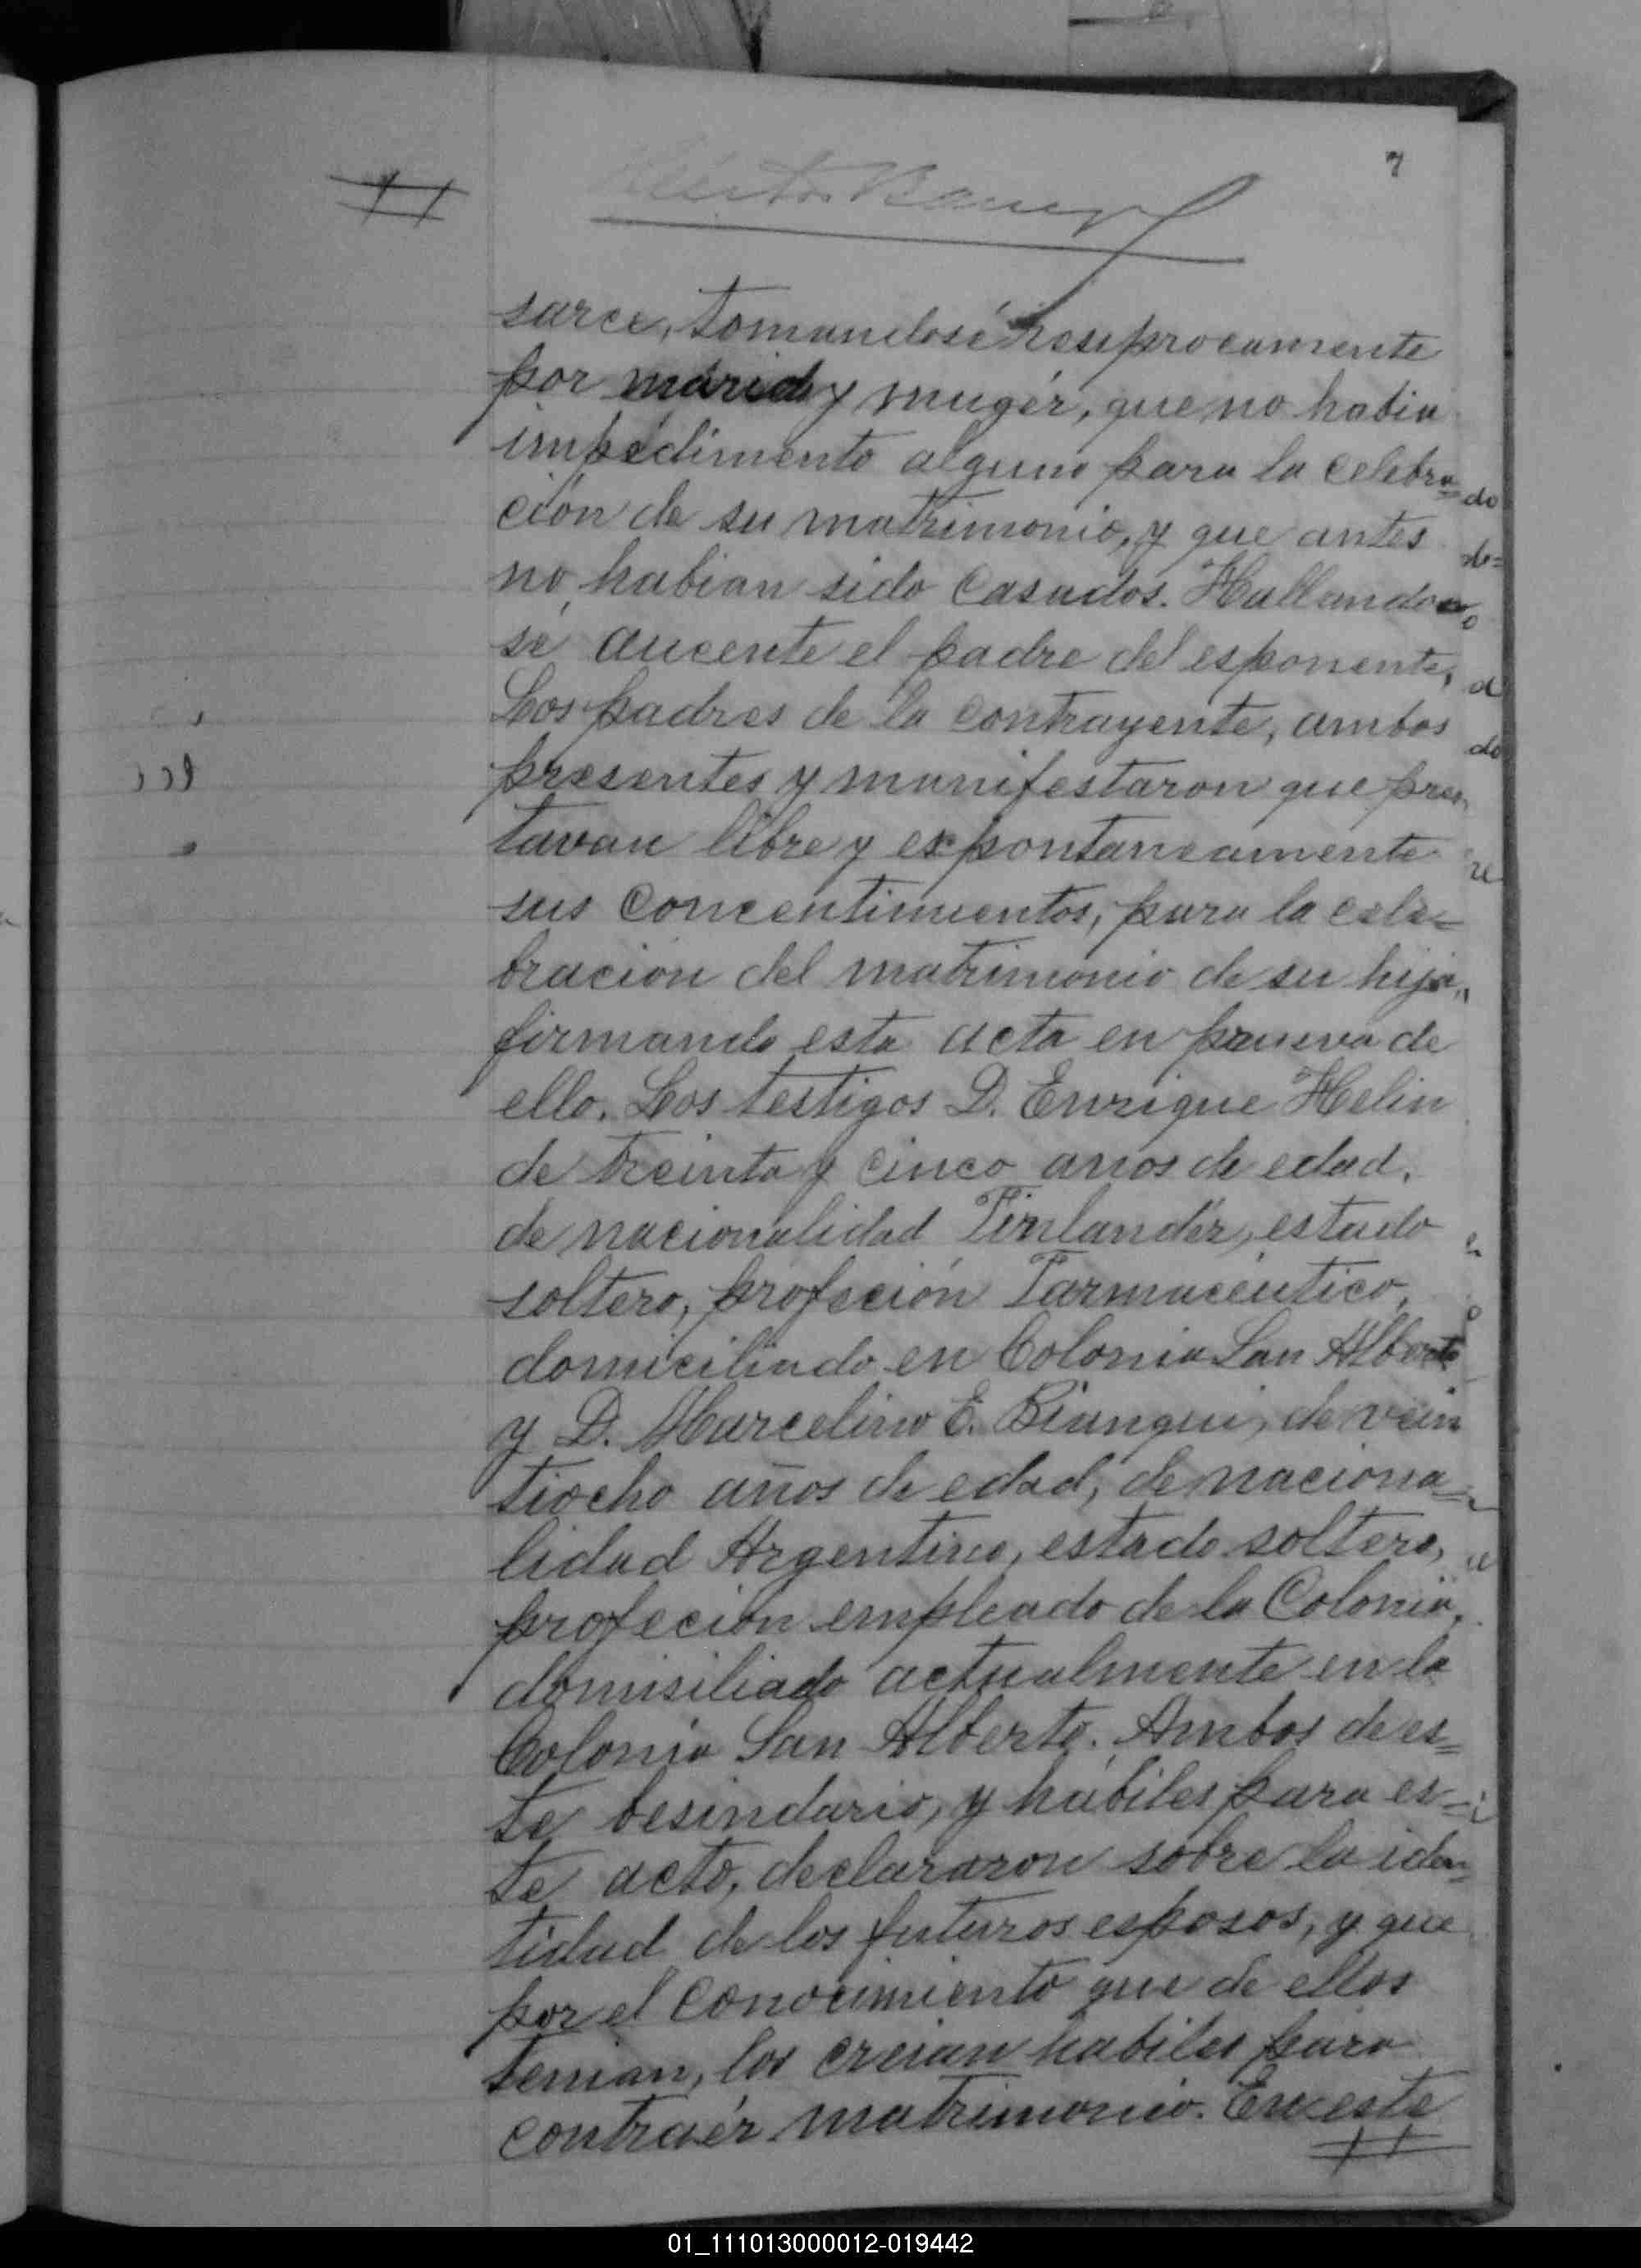 7
sarce, tomandosé resiprocamente
por marido y mugér, que no habia
impedimento alguno para la celebra=
ción de su matrimonio, y que antes
no habian sido Casados. Hallando
sé aucente el padre del esponente,
Los padres de la contrayente, ambos
presentes y manifestaron que pres
tavan libre y expontaneamente
sus concentimientos, para la cele=
bración del matrimonio de su hija,
firmando esta acta en prueva de
ello. Los testigos D. Enrique Helin
de treinta y cinco anos de edad,
de nacionalidad Finlandér, estado
soltero, profeción Farmacéutico,
domiciliado en Colonia San Alberto
y D. Marcelino E. Biangui, de vein
tiocho años de edad, de naciona=
lidad Argentino, estado soltero,
profeción empleado de la Colonia,
domisiliado actualmente en la
Colonia San Alberto. Ambos de es=
te besindario, y hábiles para es=
te acto, declararon sobre la iden=
tidad de los futuros esposos, y que
por el conocimiento que de ellos
tenian, los creian habiles para
contraér matrimonio. En este
01_111013000012-019442